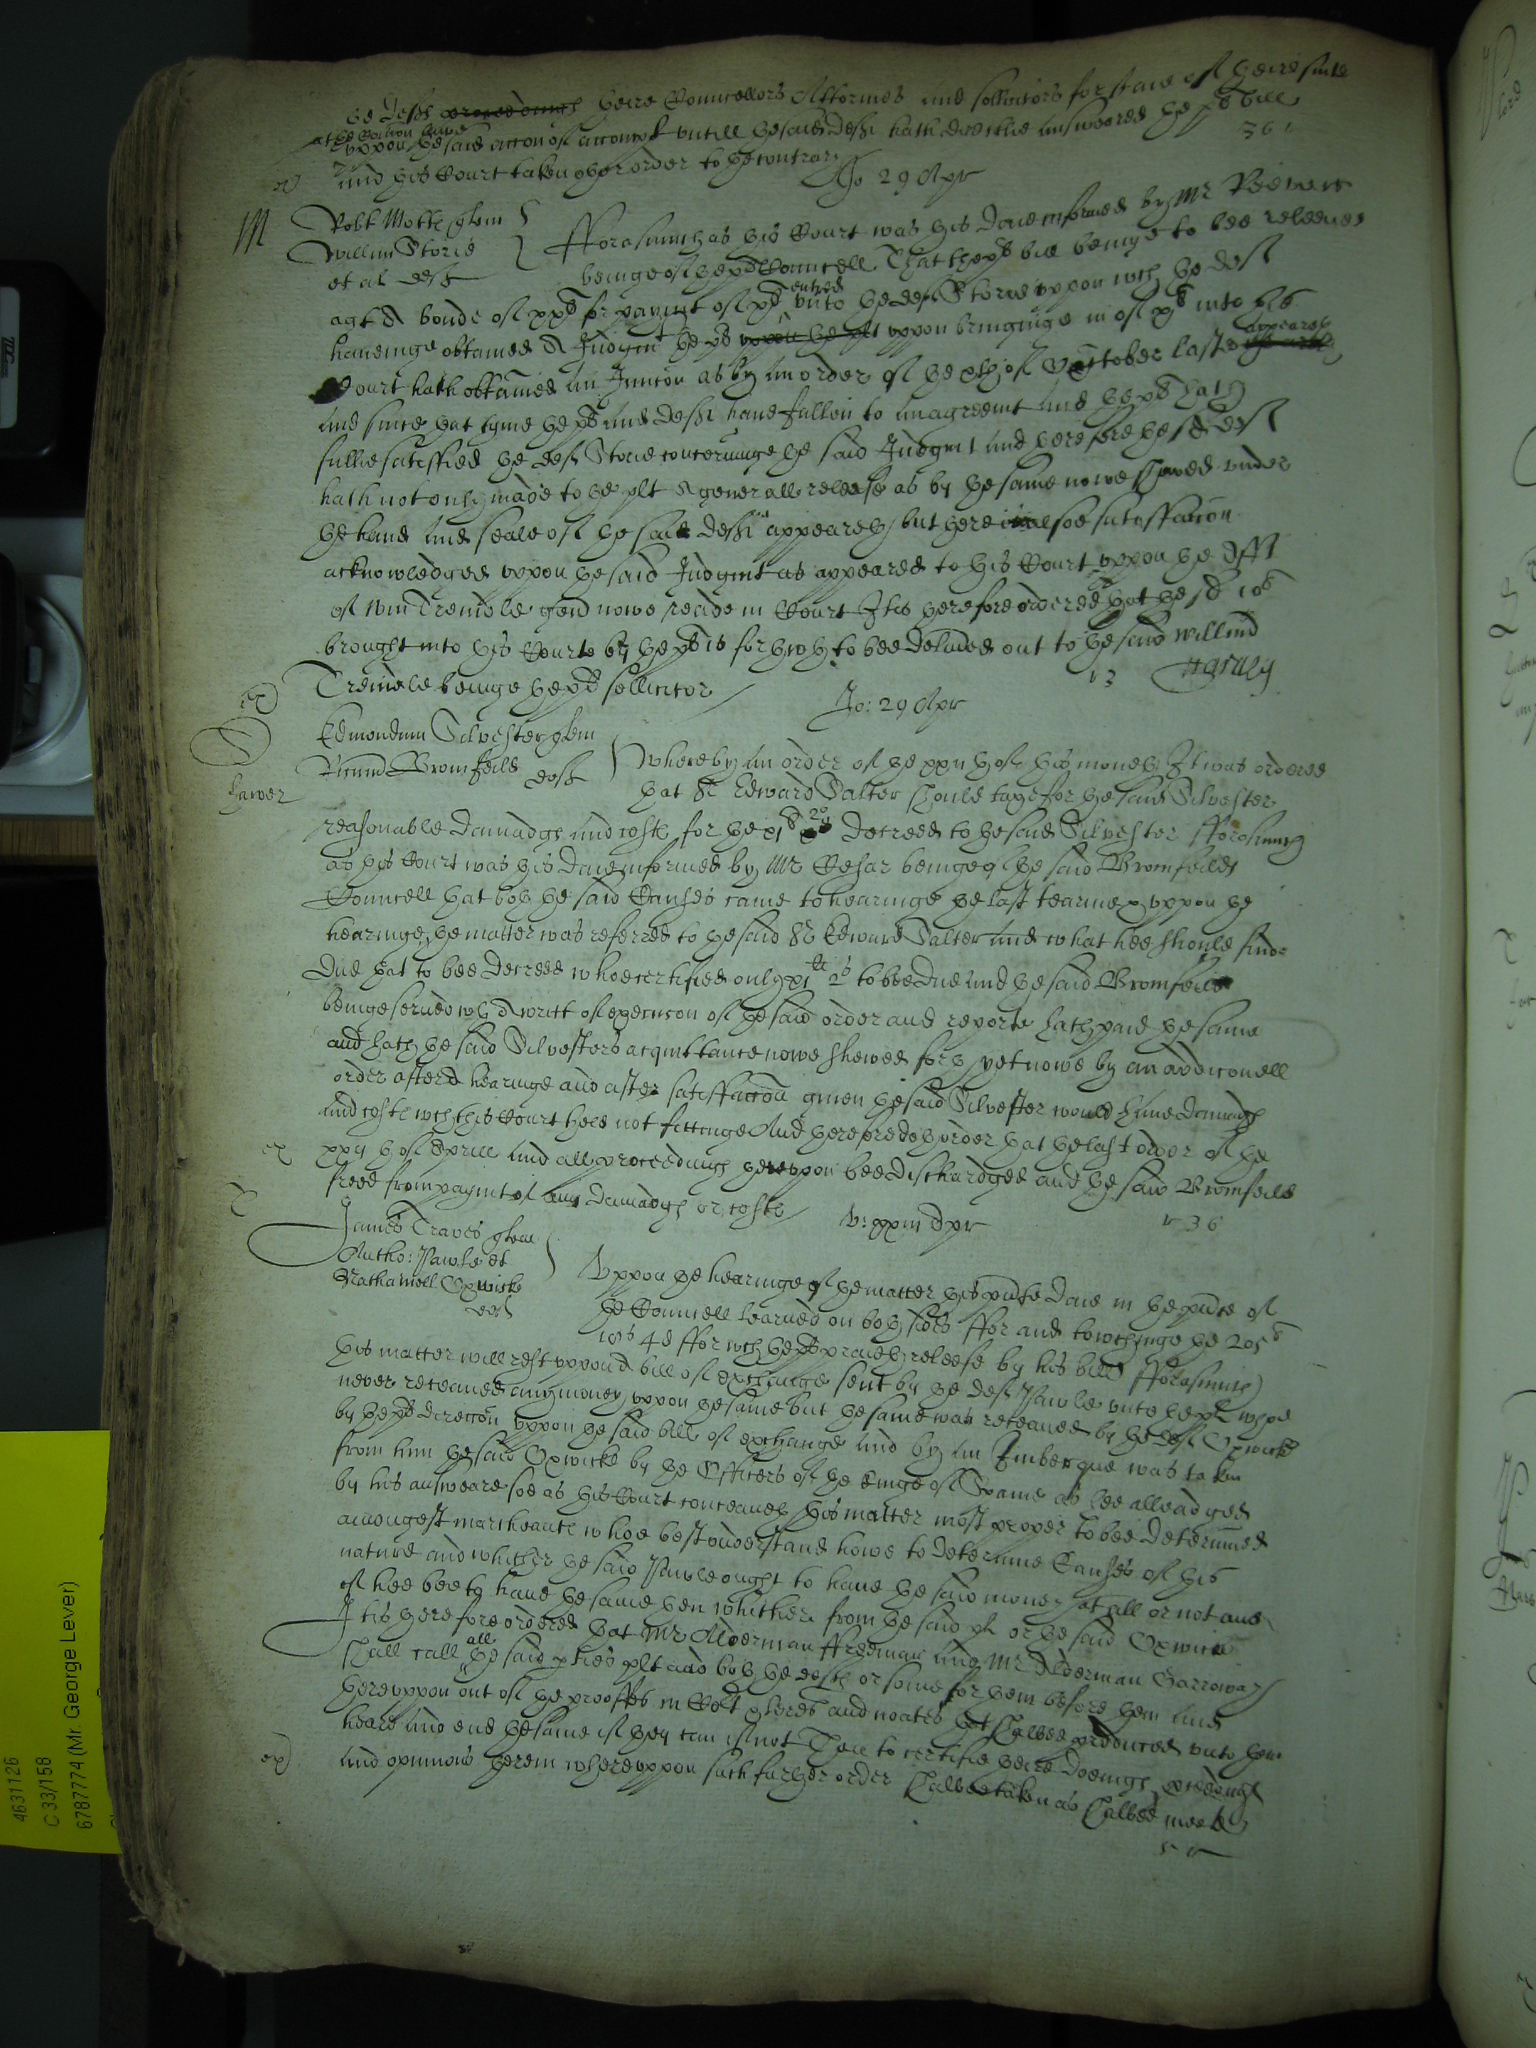 the defts proceedings theire Councellors Attornies and sollicitors for staie of theire suite
at the Comon lawe
uppon the said accon of accompt untill the said deft hath directlie answeared the pl bill
and this Court taken other order to the contrary
Jo 29 Apr
Robt Motte quer
Willm Storie
et al deft
Fforasmuch as this Court was this daie informed by Mr
beinge of the pl Councell That the pl bill beinge to bee releeved
agt A bonde of xx l for payment of x l entred unto the deft Storie uppon wch the deft
haveinge obtained A Judgmt the pl uppon bringinge in of x l into this
Court hath obtained an Iniuncon as by an order of the of October last appeareth
and since that tyme the pl and deft have fallen to an agreemt and the pl hath
fullie satisfied the deft Storie concerninge the said Judgmt and therefore the sd deft
hath not onlie made to the plt A generall release as by the same nowe shewed under
the hand and seale of the said deft appeareth but there is alsoe satisfaccon
acknowledged uppon the said Judgmt as appeared to this Court uppon the Afft
of Wm Tremble gent nowe reade in Court It is therefore ordered that the sd 10 l
brought into this Courte by the pl is forthwth to bee delivered out to the said Willm
Tremble beinge the pl sollicitor
Jo: 29 Apr
Edmondum Silvester quer
Ricum Bromfeild deft
Whereby an order of the of this moneth It was ordered
that Sr Edward Salter should taxe for the said Silvester
reasonable damadge and costs for the decreed to the said Silvester Fforasmuch
as this Court was this daie informed by Mr Cesar beinge of the said Bromfeilds
Councell that both the said Causes came to hearinge the last tearme uppon the
hearinge the matter was referred to the said Sr Edward Salter and what hee should finde
due that to bee decreed whoe certified only to bee due and the said Bromfeild
beinge served wth A writt of execucon of the said order and reporte hath paid the same
and hath the said Silvesters acquittance nowe shewed forth yet nowe by an addiconall
order after a hearinge and after satisfaccon given the said Silvester would have damadge
and costs wch this Court held not fittinge And therefore doth order that the last order of the
of Aprill and all proceedings thereuppon bee dischardged and the said Bromfeild
freed from paymt of any damadge or costs
V: xxiii Apr
James Traves quer
Antho: Pawle et
Nathaniell Oxwicke
deft
Uppon the hearinge of the matter this prsente daie in the prsence of
the Councell learned on both sides ffor and towchinge the 205 l
4d ffor wch the pl praieth releefe by his bill Fforasmuch
this matter will rest uppon A bill of exchange sent by the deft Pawle unto the pl whoe
never receaved any money uppon the same but the same was receaved by the deft Oxwicke
by the pl direccon uppon the said bill of exchange and by an Imberque was taken
from him the said Oxwicke by the Officers of the kinge of Spaine as hee alleadged
by his answeare soe as this Court conceaveth this matter most proper to bee determined
amongest marcheants whoe best understand howe to determine Causes of this
nature and whether the said Pawle ought to have the said money at all or not and
if hee bee to have the same then whither from the said pl or the said Oxwicke
It is therefore ordered that Mr Alderman Ffreeman and Mr Alderman Garroway
shall call all the said pties plt and both the defts or some for them before them and
thereuppon out of the prooffes in Cort and noates shalbee produced unto them
heare and end the same if they can if not Then to certifie theire doeings
and opinions therein whereuppon such further order shalbee taken as shalbee meete
4631126
C 33/158
6787774 (Mr. George Lever)